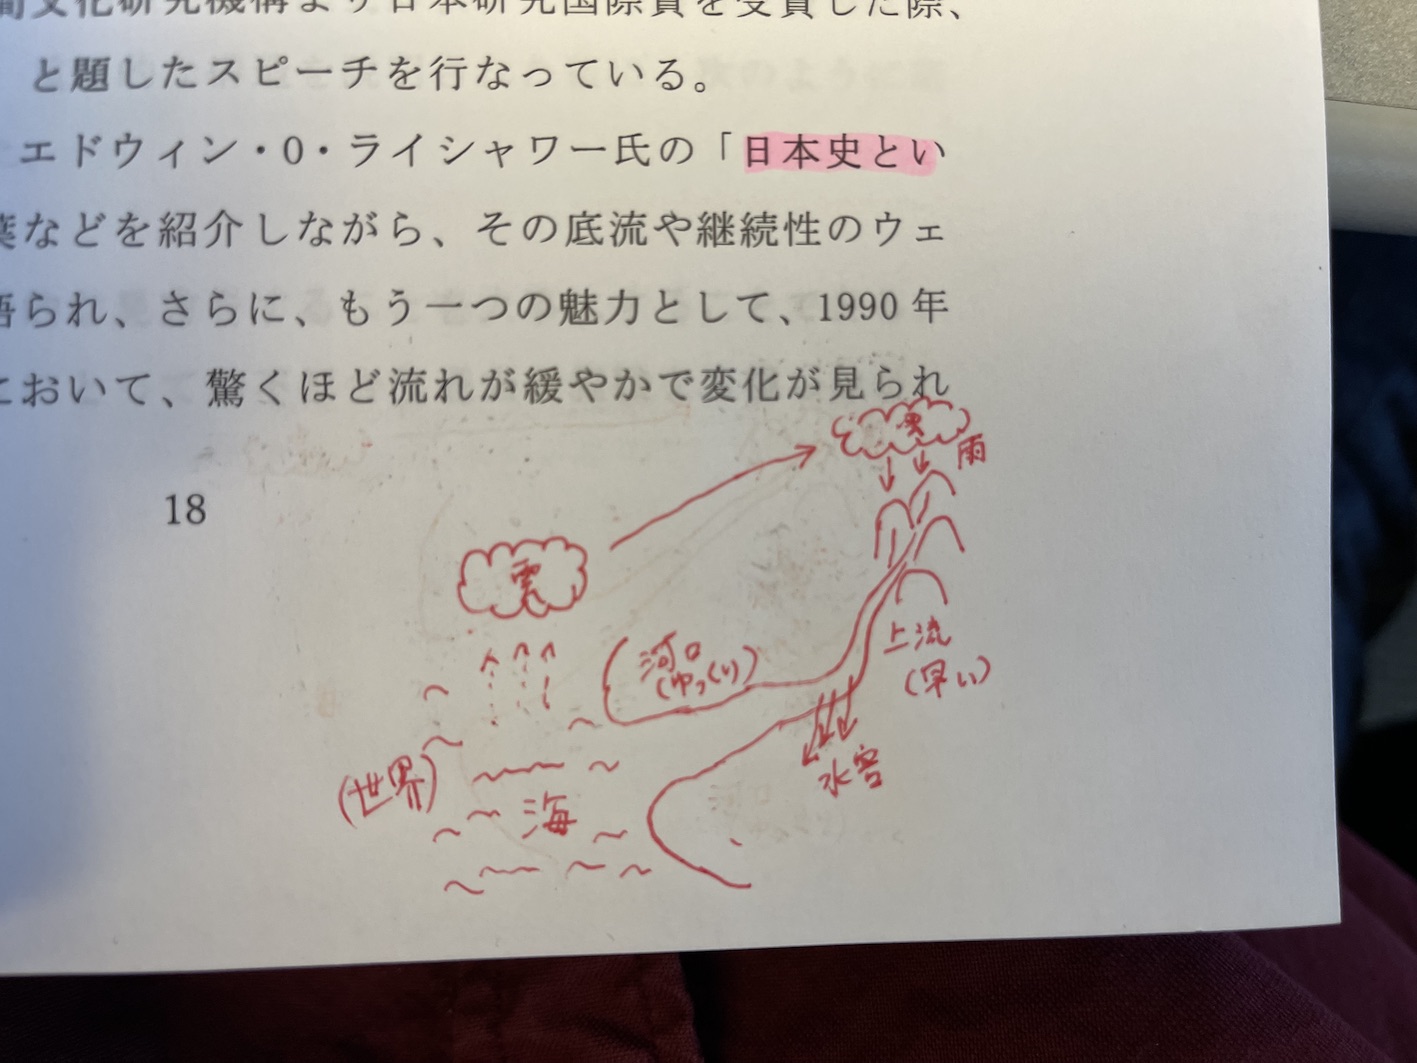 文化研究機構より日本研究国際賞を受賞した際、
と題したスピーチを行なっている。
エドウィン・O・ライシャワー氏の「日本史とい
葉などを紹介しながら、その底流や継続性のウェ
語られ、さらに、もう一つの魅力として、1990 年
において、驚くほど流れが緩やかで変化が見られ
18
雲
雨
雲
上流
(早い)
河口
(ゆっくり)
水害
(世界)
海